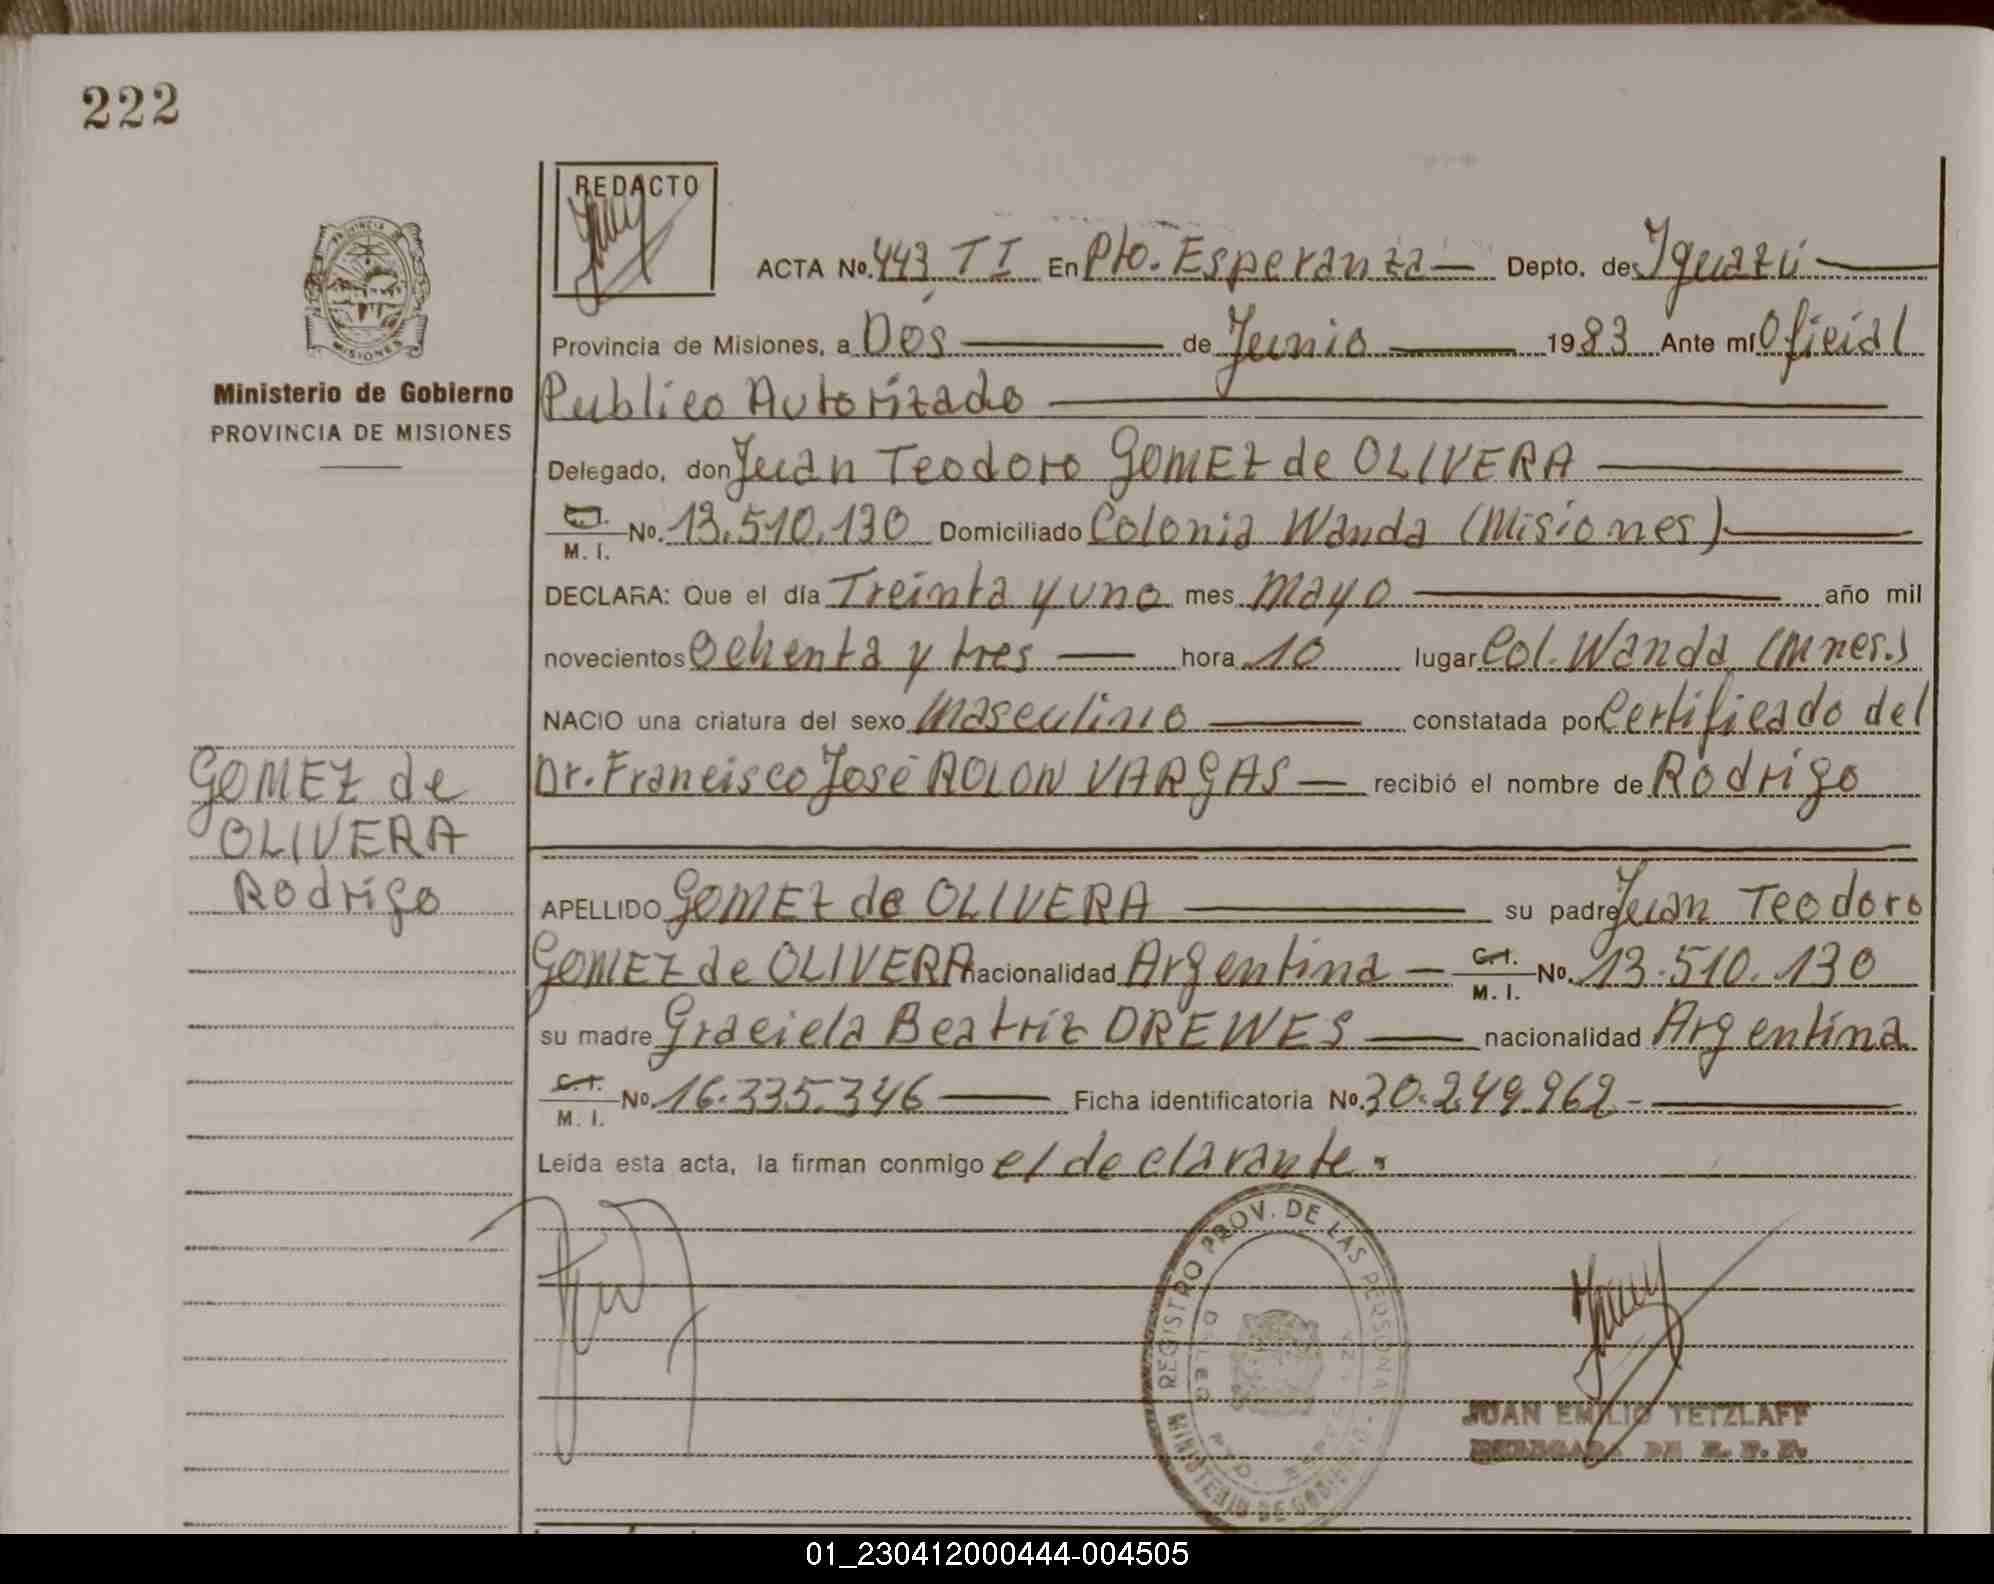 222
REDACTO
ACTA No. 443 TI En Pto. Esperanza Depto. de Iguazú
PROVINCIA DE
MISIONES
Provincia de Misiones, a Dos de Junio 1983 Ante mí Oficial
Ministerio de Gobierno
Publico Autorizado
PROVINCIA DE MISIONES
Delegado, don Juan Teodoro GOMEZ de OLIVERA
C.I.
M. I. No. 13.510.130 Domiciliado Colonia Wanda (Misiones)
DECLARA: Que el día Treinta y uno mes Mayo año mil
novecientos Ochenta y tres hora 10 lugar Col. Wanda (Mnes.)
NACIO una criatura del sexo Masculino constatada por Certificado del
Dr. Francisco José ROLON VARGAS recibió el nombre de Rodrigo
GOMEZ de
OLIVERA
Rodrigo
APELLIDO GOMEZ de OLIVERA su padre Juan Teodoro
GOMEZ de OLIVERA nacionalidad Argentina C.I.
M. I. No. 13.510.130
su madre Graciela Beatriz DREWES nacionalidad Argentina
C.I.
M. I. No. 16.335.346 Ficha identificatoria No. 30.249.962-
Leída esta acta, la firman conmigo el declarante.
REGISTRO PROV. DE LAS PERSONAS
MINISTERIO DE GOBIERNO
JUAN EMILIO TETZLAFF
DE R. P. P.
01_230412000444-004505